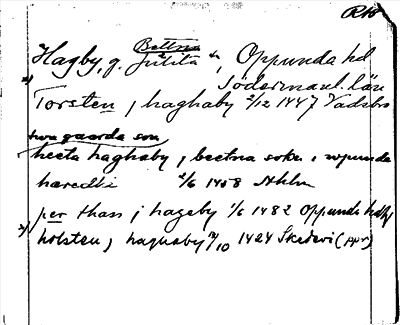 RA0
Bettna
Hagby, g. Julita sn, Oppunda hd
Södermanl. län
Torsten, i haghaby 2/12 1447 Vadsbro
twa gaarda som
heeta haghaby, i beetna sokn i wpunda
hæredhe 2/6 1458 Sthlm
per thass i hageby 1/6 1482 Oppunda hdtg
holsten, i haghaby 12/10 1424 Skedevi (ppr)